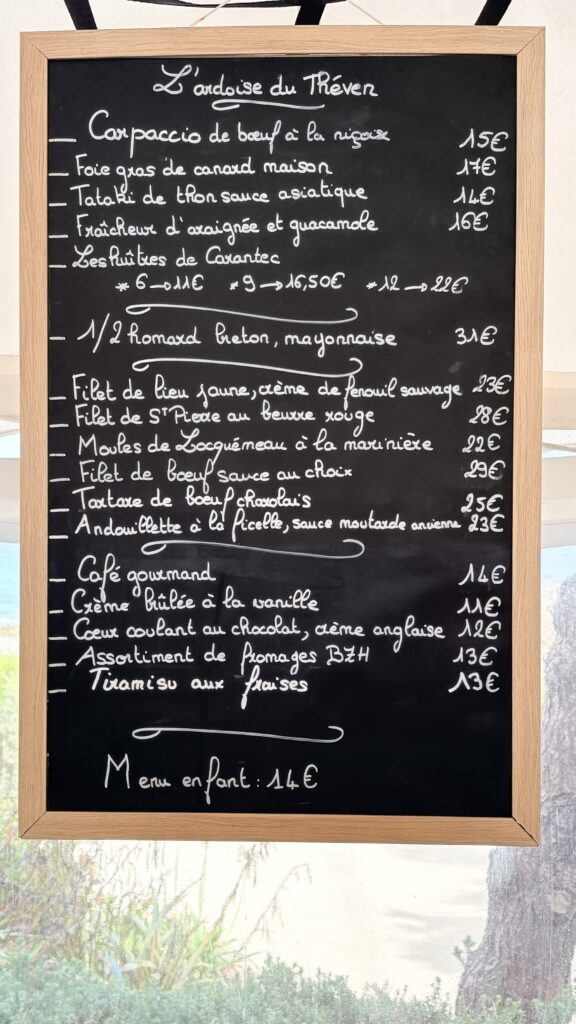 L'ardoise du Théven
— Carpaccio de bœuf à la niçoise 15€
— Foie gras de canard maison 17€
— Tataki de thon sauce asiatique 14€
— Fraîcheur d'araignée et guacamole 16€
— Les huîtres de Carantec
* 6 → 11€ * 9 → 16,50€ * 12 → 22€
— 1/2 homard breton, mayonnaise 31€
— Filet de lieu jaune, crème de fenouil sauvage 23€
— Filet de St Pierre au beurre rouge 28€
— Moules de Locquémeau à la marinière 22€
— Filet de bœuf sauce au choix 29€
— Tartare de bœuf charolais 25€
— Andouillette à la ficelle, sauce moutarde ancienne 23€
— Café gourmand 14€
— Crème brûlée à la vanille 11€
— Cœur coulant au chocolat, crème anglaise 12€
— Assortiment de fromages BZH 13€
— Tiramisu aux fraises 13€
Menu enfant : 14€